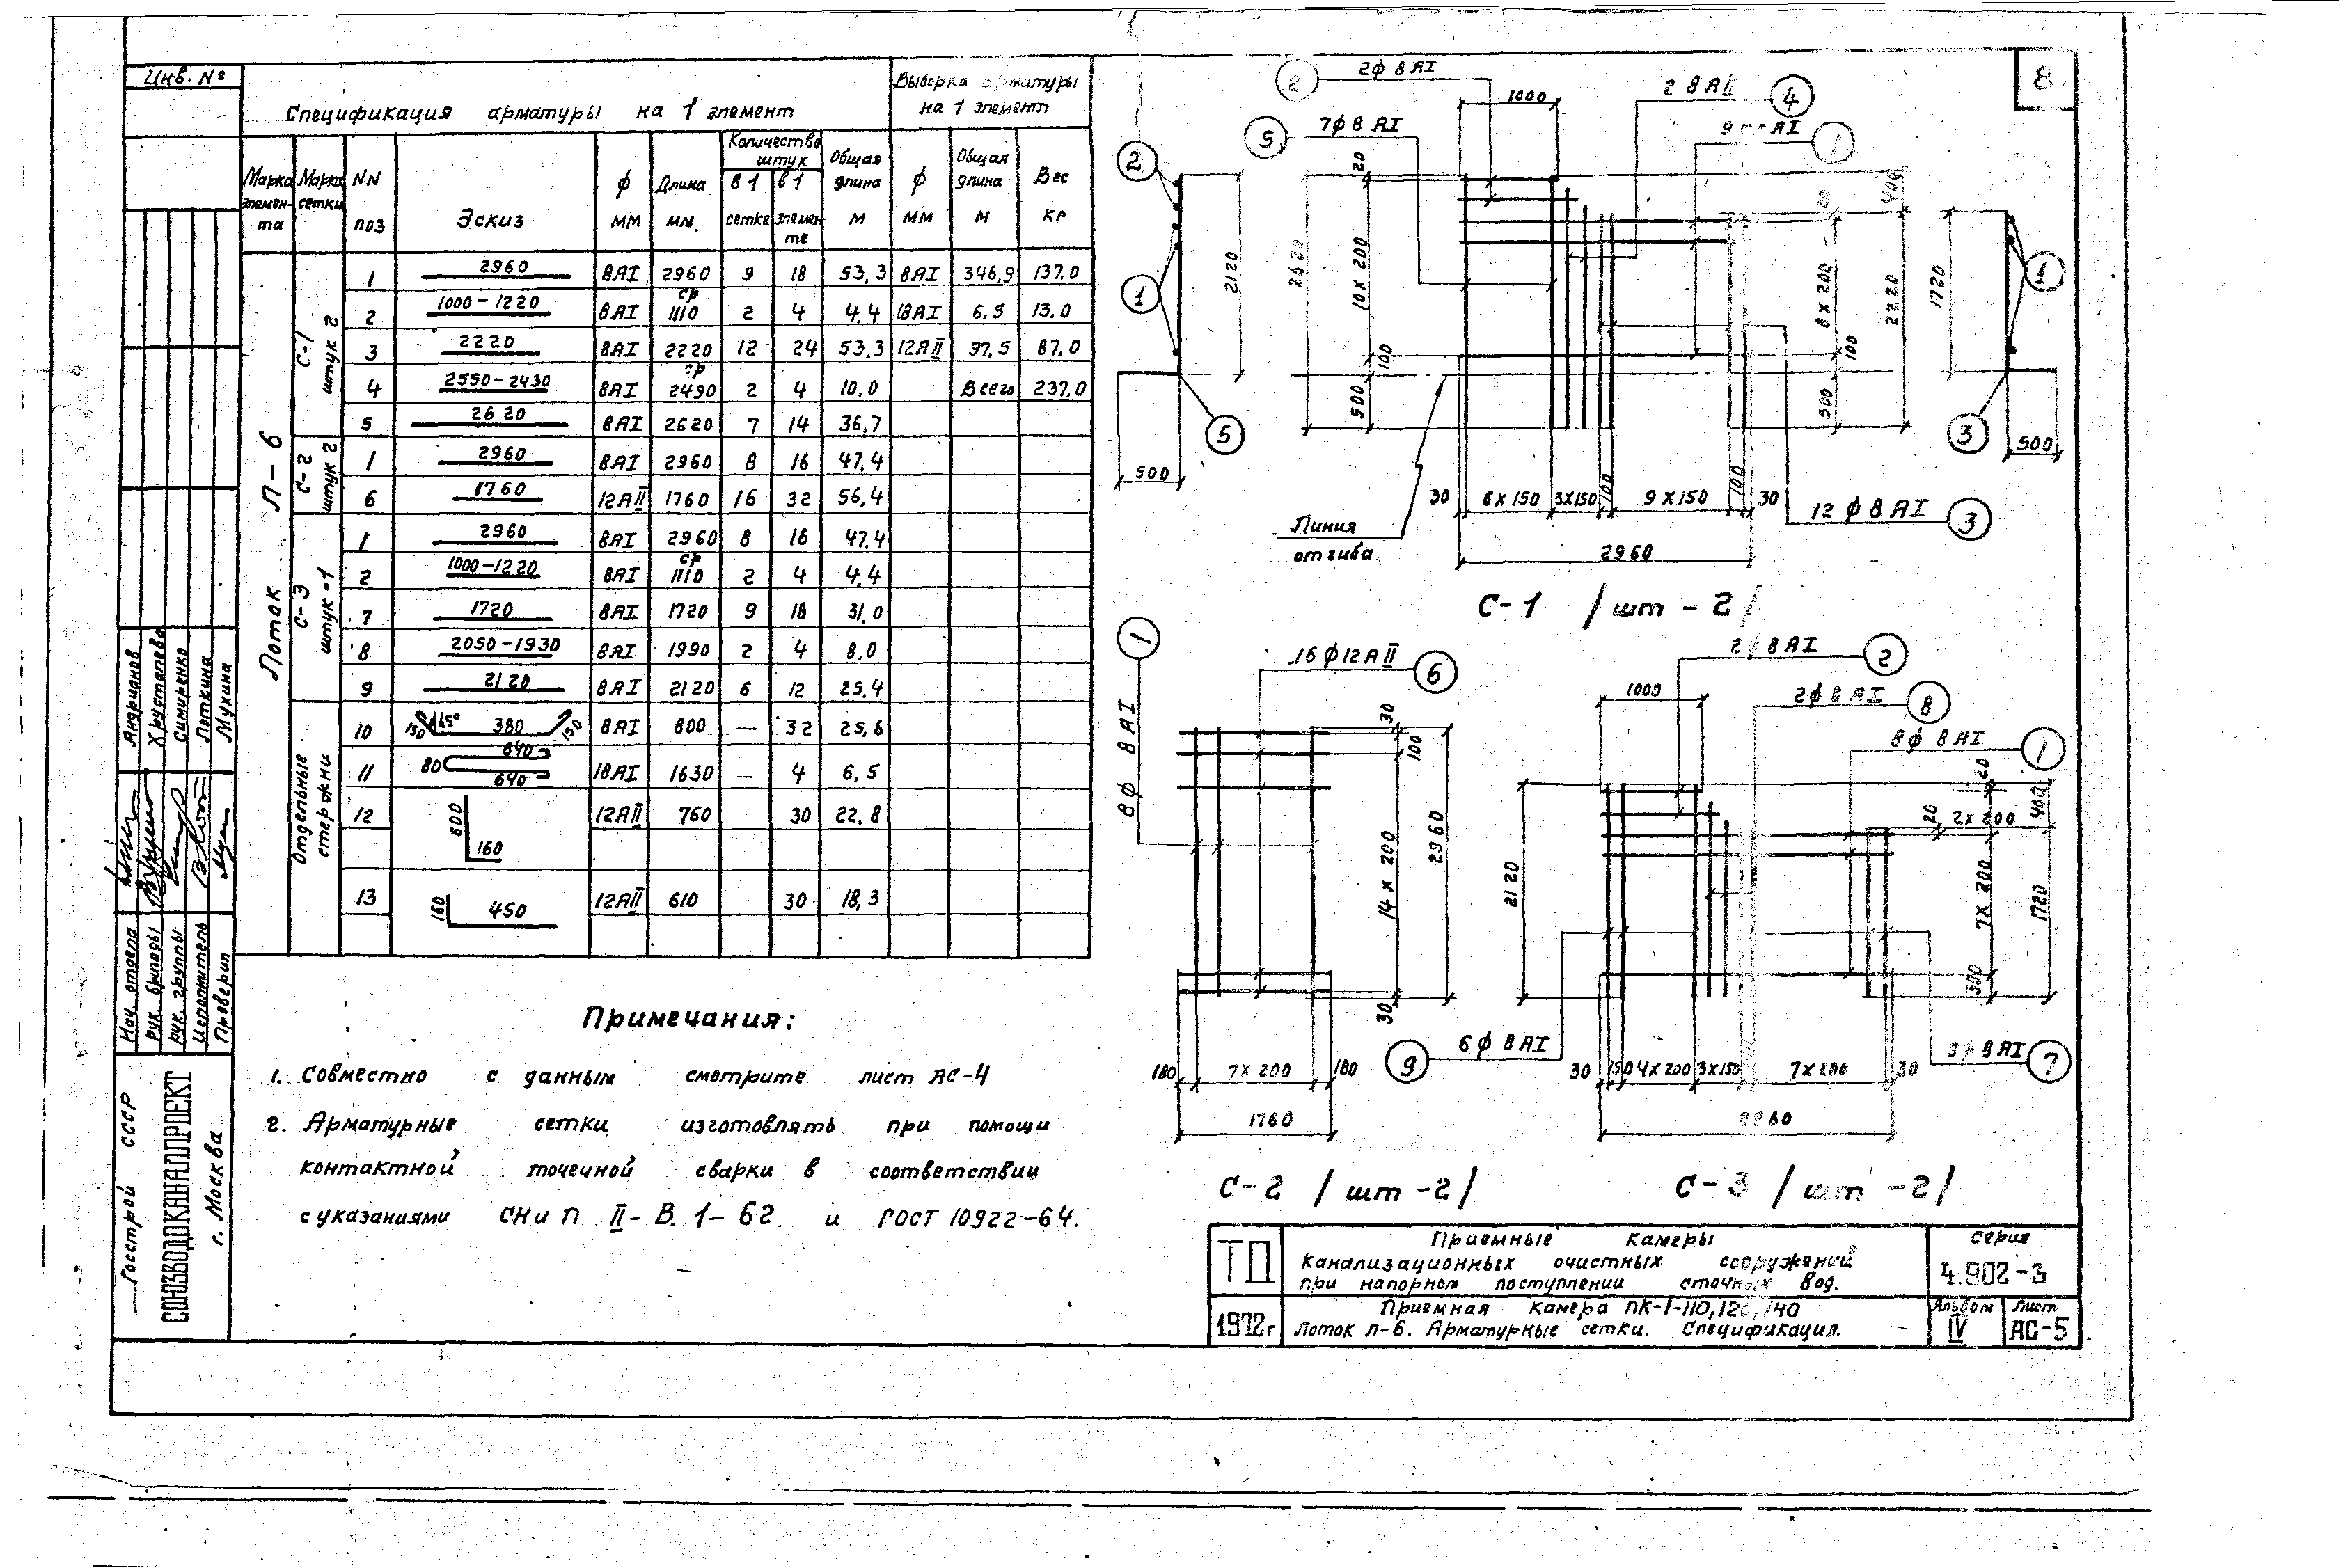 8
Инв. №
Спецификация арматуры на 1 элемент
Выборка арматуры на 1 элемент
Марка элемен-та
Марка сетки
NN поз
Эскиз
ф мм
Длина мм.
Количество штук
в 1 сетке
в 1 элемен-те
Общая длина м
ф мм
Общая длина м
Вес кг
Лоток Л-6
С-1 штук 2
1 2960 8АI 2960 9 18 53,3 8АI 346,9 137.0
2 1000-1220 8АI ср 1110 2 4 4.4 18АI 6,5 13,0
3 2220 8АI 2220 12 24 53.3 12АII 97,5 87.0
4 2550-2430 8АI ср 2490 2 4 10.0 Всего 237,0
5 2620 8АI 2620 7 14 36,7
С-2 штук 2
1 2960 8АI 2960 8 16 47.4
6 1760 12АII 1760 16 32 56,4
С-3 штук-1
1 2960 8АI 2960 8 16 47.4
2 1000-1220 8АI ср 1110 2 4 4,4
7 1720 8АI 1720 9 18 31,0
8 2050-1930 8АI 1990 2 4 8,0
9 2120 8АI 2120 6 12 25.4
Отдельные стержни
10 150 45° 380 150 8АI 800 — 32 25,6
11 80 640 640 18АI 1630 — 4 6,5
12 600 160 12АII 760 30 22,8
13 160 450 12АII 610 30 18,3
Примечания:
1. Совместно с данным смотрите лист АС-4
2. Арматурные сетки изготовлять при помощи
контактной точечной сварки в соответствии
с указаниями СНиП II-В. 1-62 и ГОСТ 10922-64.
2
1
5
2120
500
2ф 8 АI
2
7ф 8 АI
5
1000
2 8 АII
4
9 АI
1
20
10 х 200
100
500
2620
20
6 х 200
100
500
400
2220
1720
1
3
500
30 6 х 150 3х150 100 9 х 150 100 30
2960
12 ф 8 АI
3
Линия
отгиба
С-1 / шт - 2 /
1
8ф 8 АI
16 ф 12 А II
6
30
100
14 х 200
2960
30
180 7 х 200 180
1760
С-2 / шт -2 /
2ф 8 АI
2
1000
2ф 8 АI
8
8ф 8 АI
1
20
400
20 2х 200
2120
7х 200
1720
300
6ф 8 АI
9
8 АI
7
30 150 4х200 3х150 7х200 30
С-3 / шт -2 /
ТД
Приемные камеры
канализационных очистных сооружений
при напорном поступлении сточных вод.
серия
4.902-3
1972г
Приемная камера ПК-1-110,120,140
Лоток Л-6. Арматурные сетки. Спецификация.
Альбом
IV
Лист
АС-5
Андрианов
Хрусталева
Симиренко
Лоткина
Мухина
Нач. отдела
рук. бригады
рук. группы
Исполнитель
Проверил
Госстрой СССР
СОЮЗВОДОКАНАЛПРОЕКТ
г. Москва